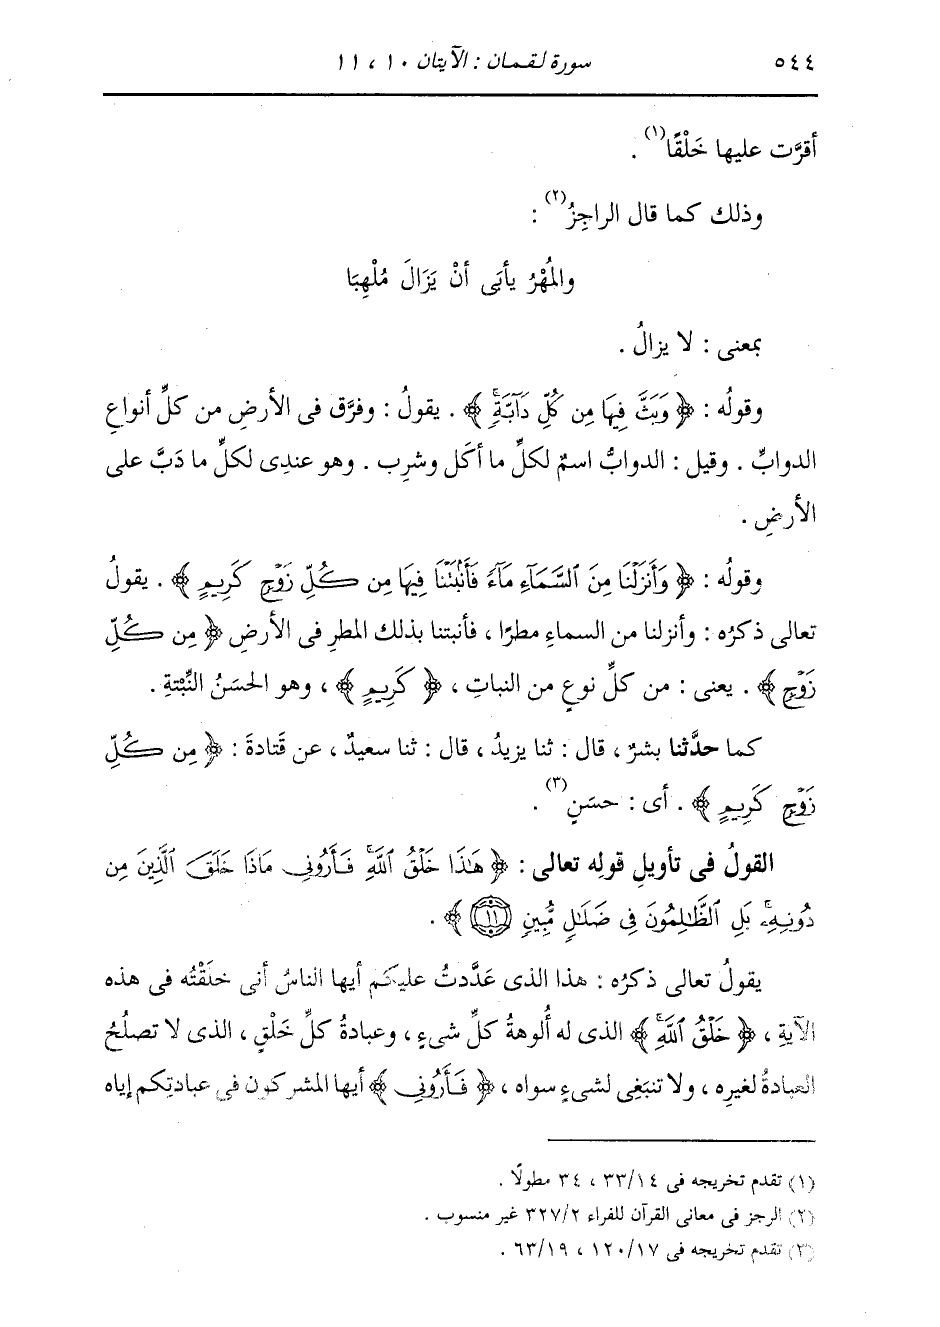 ٥٤٤ سورة لقمان : الآيتان ١٠ ، ١١
أقرَّت عليها خَلْقًا(١) .
وذلك كما قال الراجِزُ(٢) :
والمُهْرُ يأبَى أنْ يَزَالَ مُلْهِبَا
بمعنى : لا يزالُ .
وقولُه : ﴿ وَبَثَّ فِيهَا مِن كُلِّ دَآبَّةٍۚ ﴾ . يقولُ : وفرَّق فى الأرضِ من كلِّ أنواعِ
الدوابِّ . وقيل : الدوابُّ اسمٌ لكلِّ ما أكَل وشرِب . وهو عندِى لكلِّ ما دَبَّ على
الأرضِ .
وقولُه : ﴿ وَأَنزَلْنَا مِنَ ٱلسَّمَآءِ مَآءً فَأَنۢبَتْنَا فِيهَا مِن كُلِّ زَوْجٍ كَرِيمٍ ﴾ . يقولُ
تعالى ذكرُه : وأنزلنا من السماءِ مطرًا ، فأنبتنا بذلك المطرِ فى الأرضِ ﴿ مِن كُلِّ
زَوْجٍ ﴾ . يعنى : من كلِّ نوعٍ من النباتِ ، ﴿ كَرِيمٍ ﴾ ، وهو الحَسَنُ النَّبْتةِ .
كما حدَّثنا بشرٌ ، قال : ثنا يزيدُ ، قال : ثنا سعيدٌ ، عن قَتادةَ : ﴿ مِن كُلِّ
زَوْجٍ كَرِيمٍ ﴾ . أى : حسَنٍ(٣) .
القولُ فى تأويلِ قولِه تعالى : ﴿ هَٰذَا خَلْقُ ٱللَّهِۚ فَأَرُونِى مَاذَا خَلَقَ ٱلَّذِينَ مِن
دُونِهِۦۚ بَلِ ٱلظَّٰلِمُونَ فِى ضَلَٰلٍ مُّبِينٍ ⟨١١⟩ ﴾ .
يقولُ تعالى ذكرُه : هذا الذى عَدَّدتُ عليكم أيها الناسُ أنى خلَقْتُه فى هذه
الآيةِ ، ﴿ خَلْقُ ٱللَّهِۚ ﴾ الذى له أُلوهةُ كلِّ شىءٍ ، وعبادةُ كلِّ خَلْقٍ ، الذى لا تصلُحُ
العبادةُ لغيرِه ، ولا تنبَغِى لشىءٍ سواه ، ﴿ فَأَرُونِى ﴾ أيها المشركون فى عبادتِكم إياه
(١) تقدم تخريجه فى ٣٣/١٤ ، ٣٤ مطولًا .
(٢) الرجز فى معانى القرآن للفراء ٣٢٧/٢ غير منسوب .
(٣) تقدم تخريجه فى ١٢٠/١٧ ، ٦٣/١٩ .